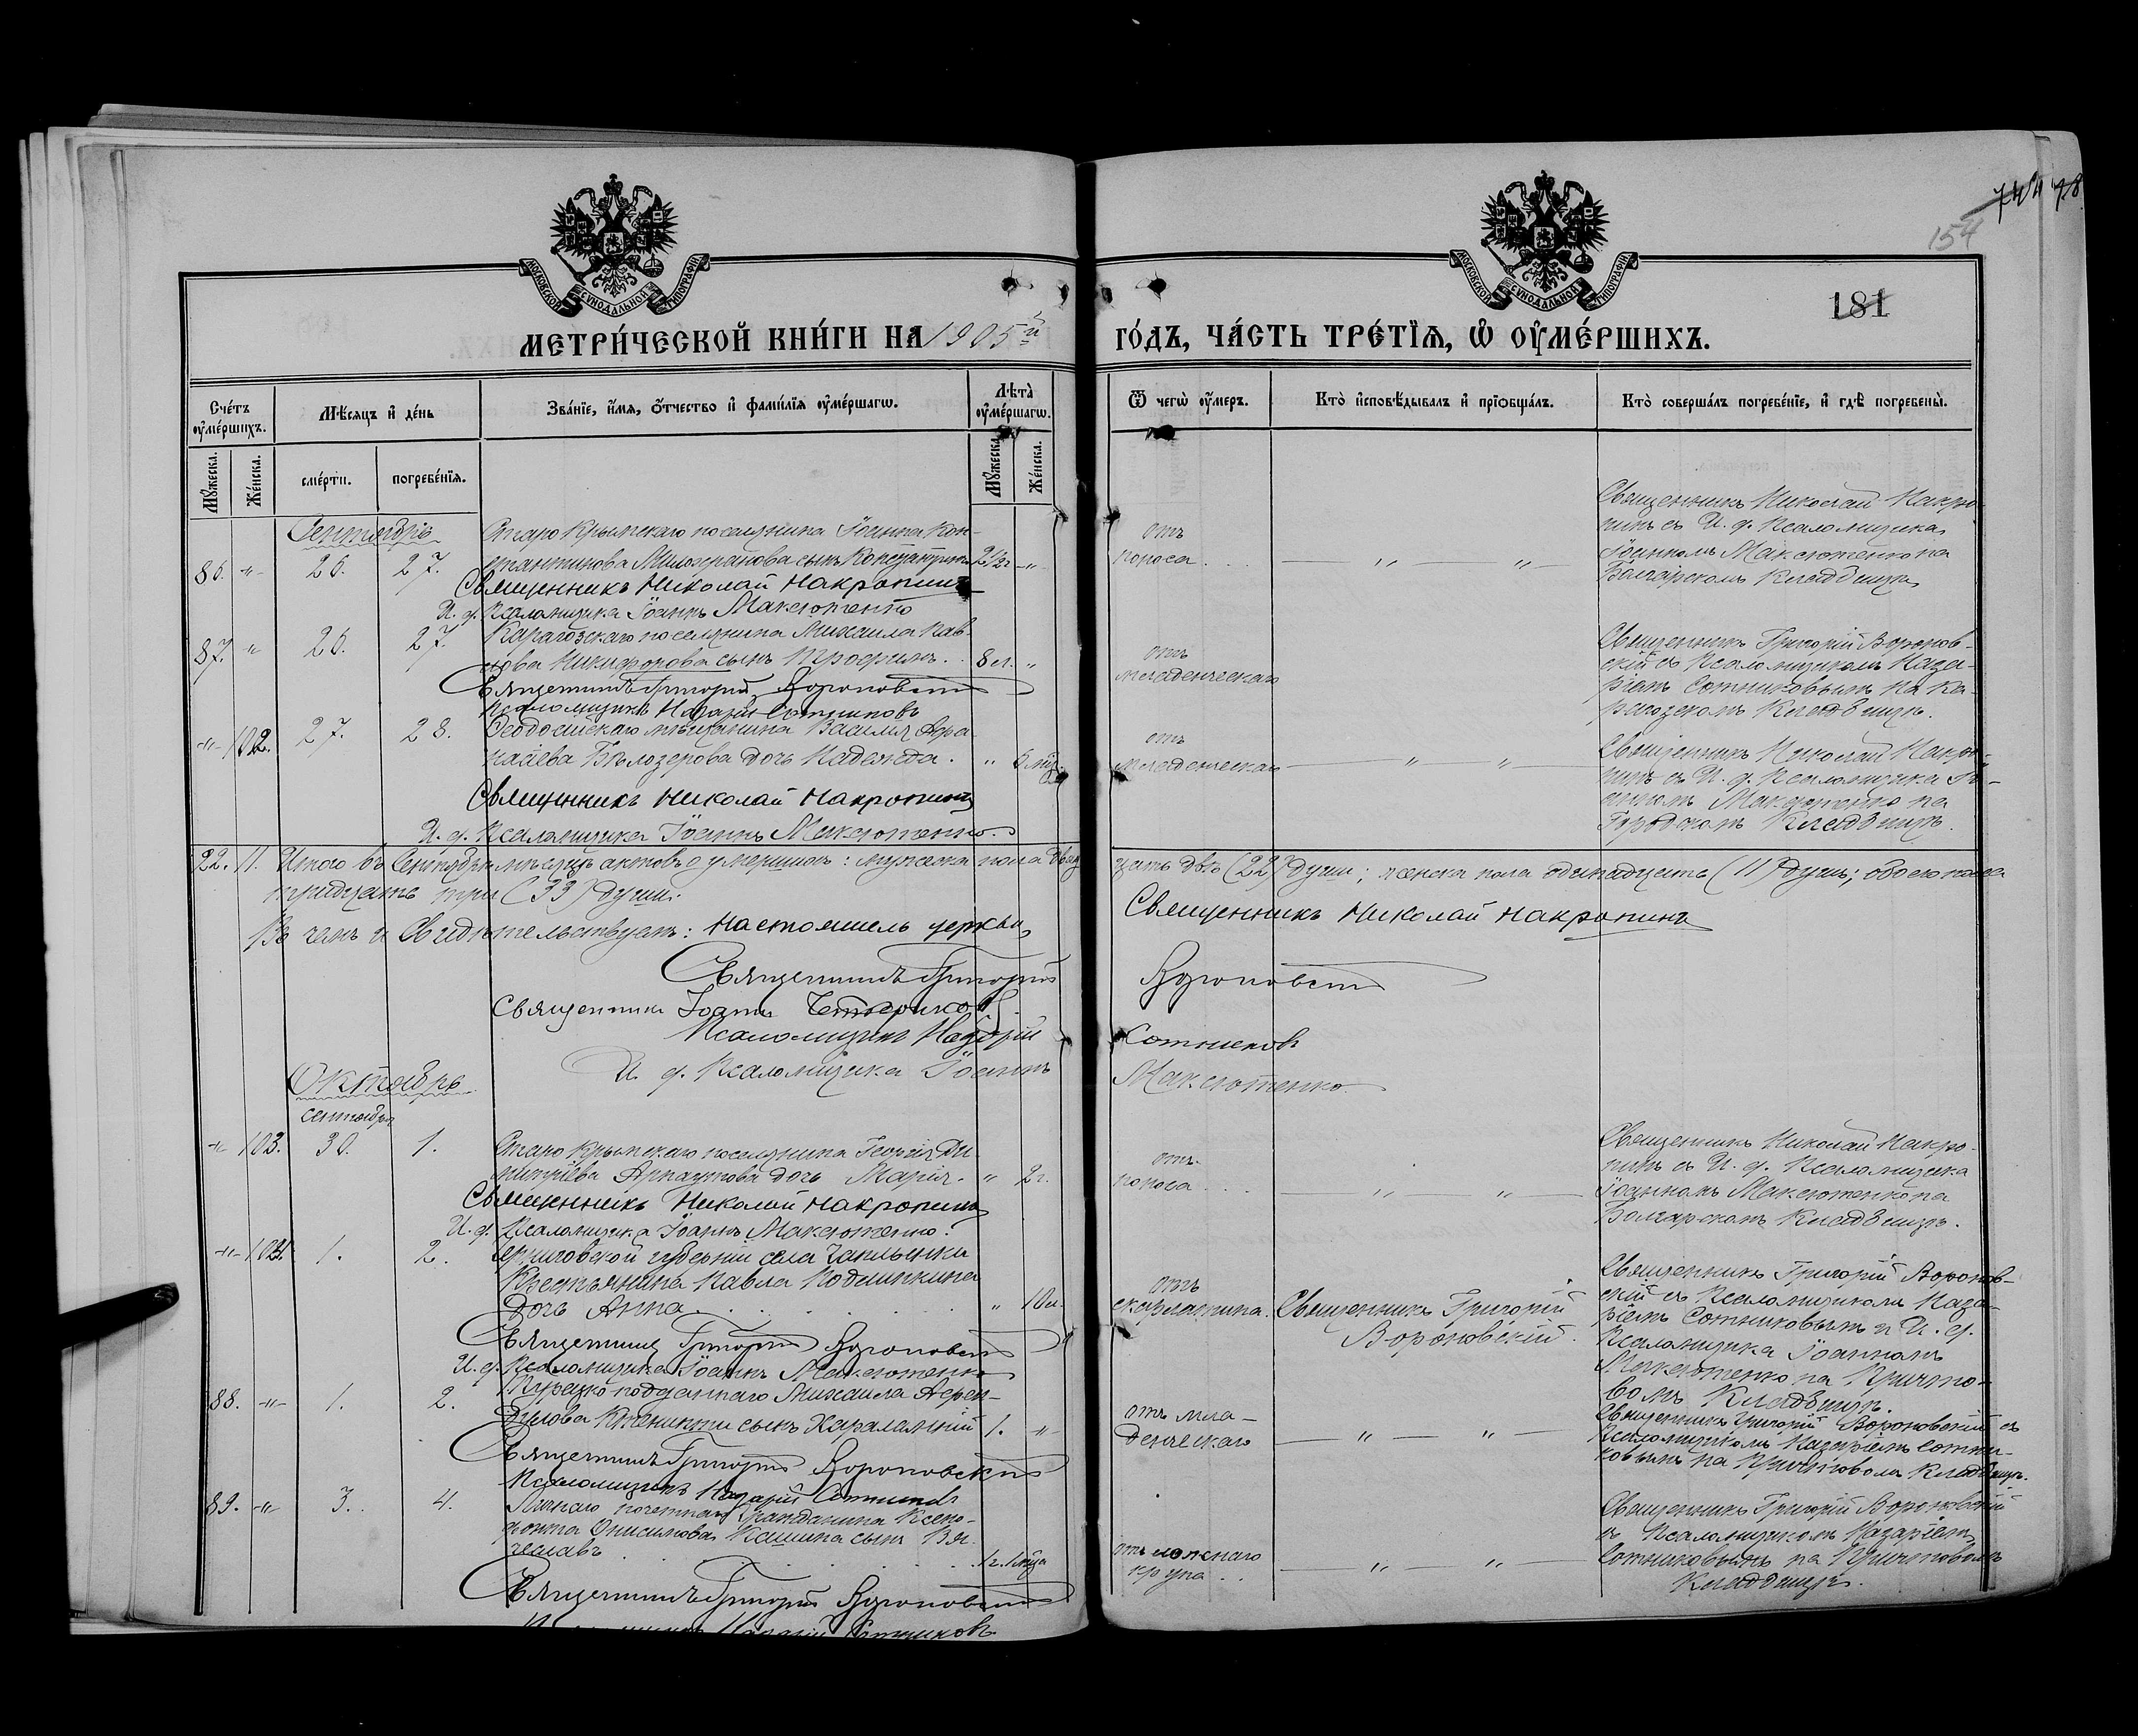 744 78
154
181
МОСКОВСКОЙ СѴНОДАЛЬНОЙ ТИПОГРАФІИ
МОСКОВСКОЙ СѴНОДАЛЬНОЙ ТИПОГРАФІИ
МЕТРИ́ЧЕСКОЙ КНИ́ГИ НА 1905й
ГО́ДЪ, ЧА́СТЬ ТРЕ́ТЇѦ, Ѡ҆ ОУ҆МЕ́РШИХЪ.
Сче́тъ оу҆ме́ршихъ.
Мѣ́сяцъ и҆ де́нь
Зва́нїе, и҆́мя, ѻ҆́тчество и҆ фами́лїя оу҆ме́ршагѡ.
Лѣта̀ оу҆ме́ршагѡ.
Ѿ чегѡ̀ оу҆́меръ.
Кто̀ и҆сповѣ́дывалъ и҆ прїѻбща́лъ.
Кто̀ соверша́лъ погребе́нїе, и҆ гдѣ̀ погребены̀.
Мꙋ́жеска.
Же́нска.
сме́рти.
погребе́нїя.
Мꙋ́жеска.
Же́нска.
Сентябрь
Старо Крымскаго поселянина Іоанна Кон-
86. -"- 26. 27. стантинова сынъ Константинъ 2½ г. -"-
Священникъ Николай Накропинъ
И. д. Псаломщика Іоаннъ Максютенко
отъ
поноса . . . . -"- -"-
Священникъ Николай Накро-
пинъ съ И. д. Псаломщика
Іоанномъ Максютенко на
Болгарскомъ Кладбищѣ
87. " 26. 27. Карагозскаго поселянина Михаила Пав-
лова Никифорова сынъ Трофимъ . . 8 л. "
Священникъ Григорій Вороновскій
Псаломщикъ Назарій Сотниковъ
отъ
младенческаго
Священникъ Григорій Воронов-
скій съ Псаломщикомъ Наза-
ріемъ Сотниковымъ на Ка-
рагозскомъ Кладбищѣ.
-"- 102. 27. 28. Ѳеодосійскаго мѣщанина Василія
Бѣлозерова дочь Надежда . "
Священникъ Николай Накропинъ
И. д. Псаломщика Іоаннъ Максютенко.
отъ
младенческаго -"- -"-
Священникъ Николай Накро-
пинъ съ И. д. Псаломщика Іо-
анномъ Максютенко на
Городскомъ Кладбищѣ.
22. 11. Итого въ Сентябрѣ мѣсяцѣ актовъ о умершихъ: мужеска пола двад
цать двѣ (22) души; женска пола одинадцать (11) душъ; обоего пола
тридцать три (33) души.
Въ чемъ и Свидѣтельствуемъ: Настоятель церкви,
Священникъ Николай Накропинъ
Священникъ Григорій Вороновскій
Священникъ Іоаннъ
Псаломщикъ Назарій Сотниковъ
И. д. Псаломщика Іоаннъ Максютенко.
Октябрь
сентября
-"- 103. 30. 1. Старо Крымскаго поселянина Георгія Ди-
митріева дочь Марія. " 2 г.
Священникъ Николай Накропинъ
И. д. Псаломщика Іоаннъ Максютенко.
отъ
поноса . . . . -"- -"-
Священникъ Николай Накро-
пинъ съ И. д. Псаломщика
Іоанномъ Максютенко на
Болгарскомъ Кладбищѣ.
-"- 104. 1. 2. Черниговской губерніи села
Крестьянина Павла
дочь Анна . . . . . . " 10 л.
Священникъ Григорій Вороновскій
И. д. Псаломщика Іоаннъ Максютенко
отъ
скарлатина. Священникъ Григорій
Вороновскій.
Священникъ Григорій Воронов-
скій съ Псаломщикомъ Наза-
ріемъ Сотниковымъ и И. д.
Псаломщика Іоанномъ
Максютенко на Причто-
вомъ Кладбищѣ.
88. -"- 1. 2. Турецко подданнаго Михаила
сынъ Харалампій 1. -"-
Священникъ Григорій Вороновскій
Псаломщикъ Назарій Сотниковъ
отъ мла-
денческаго -"- -"-
Священникъ Григорій Вороновскій съ
Псаломщикомъ Назаріемъ Сотни-
ковымъ на Причтовомъ Кладбищѣ.
89. -"- 3. 4. Личнаго почетнаго гражданина Ксено-
фонта Онисимова сынъ Вя-
чеславъ . . . . . . 1 г. 1 м-ца
Священникъ Григорій Вороновскій
Назарій Сотниковъ
отъ ложнаго
крупа . . -"- -"-
Священникъ Григорій Вороновскій
съ Псаломщикомъ Назаріемъ
Сотниковымъ на Причтовомъ
Кладбищѣ.